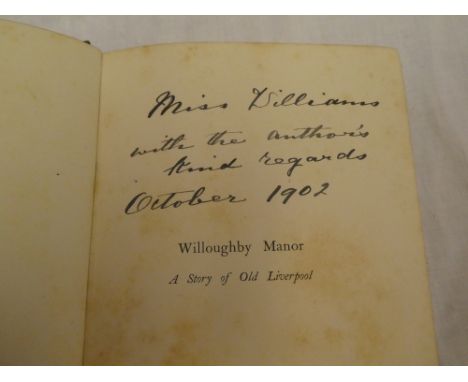 Miss Williams
with the author's
kind regards
October 1902
Willoughby Manor
A Story of Old Liverpool